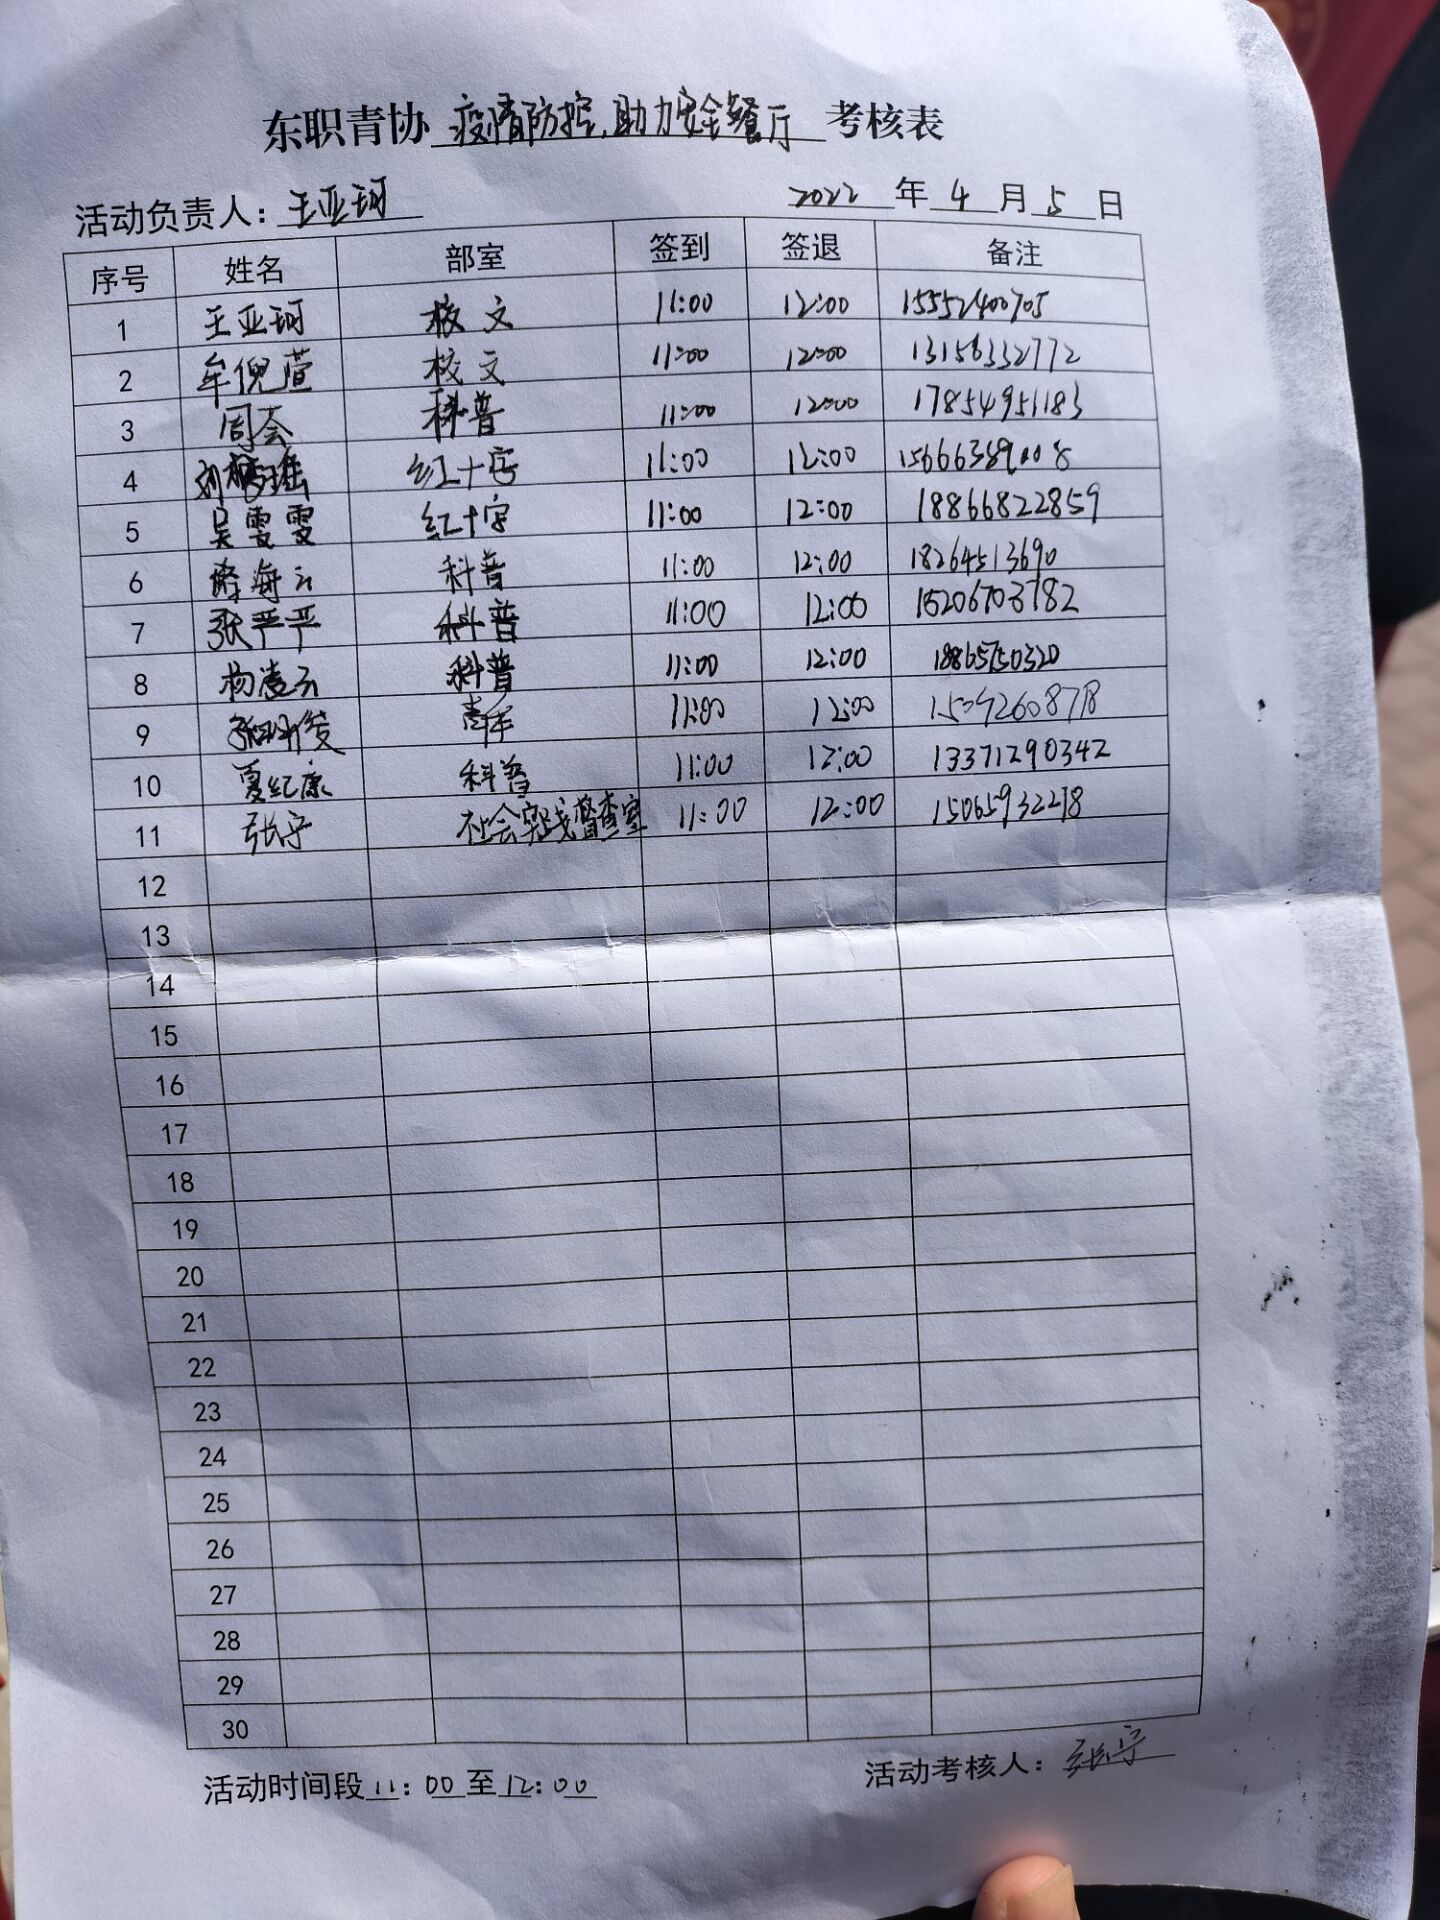 东职青协 疫情防控,助力安全餐厅 考核表
活动负责人：王亚珂 2022 年 4 月 5 日
序号 姓名 部室 签到 签退 备注
1 王亚珂 校文 11:00 12:00 15552400705
2 牟倪萱 校文 11:00 12:00 13156332772
3 周会 科普 11:00 12:00 17854951183
4 红十字 11:00 12:00
5 吴雯雯 红十字 11:00 12:00 18866822859
6 科普 11:00 12:00 18264513690
7 张严严 科普 11:00 12:00 15206703782
8 杨凌云 科普 11:00 12:00 18865750320
9 11:00 12:00
10 夏纪康 科普 11:00 12:00 13371290342
11 张宁 社会实践督查室 11:00 12:00 15065932278
12
13
14
15
16
17
18
19
20
21
22
23
24
25
26
27
28
29
30
活动时间段 11:00 至 12:00 活动考核人：张宁